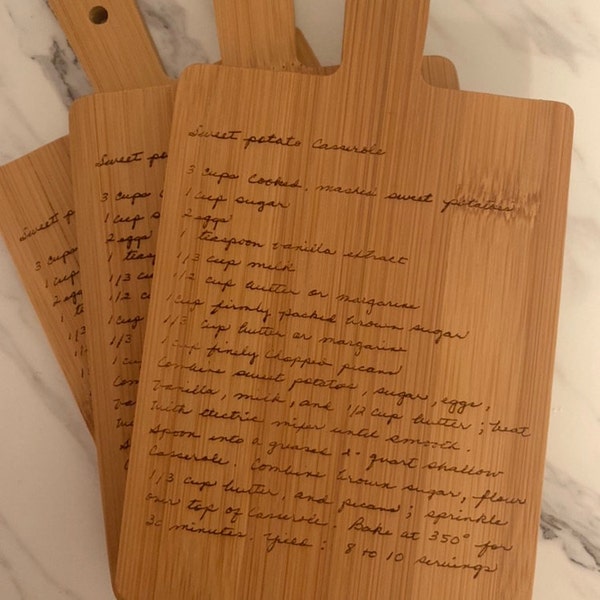 Sweet potato Casserole
3 cups cooked, mashed sweet potatoes
1 cup sugar
2 eggs
1 teaspoon vanilla extract
1/3 cup milk
1/2 cup butter or margarine
1 cup firmly packed brown sugar
1/3 cup butter or margarine
1 cup finely chopped picans
Combine sweet potatos, sugar, eggs,
Vanilla, milk, and 1/2 cup butter; beat
with electric mixer until smooth.
Spoon into a greased 2 quart shallow
Casserole. Combine brown sugar, flour
1/3 cup butter, and picans; sprinkle
over top of Casserole. Bake at 350° for
30 minutes. Yield: 8 to 10 servings
Sweet po
3 cups
1 cup s
2 eggs
1 teas
1/3 c
1/2 c
1 cup
1/3
1 cu
Com
Va
Sweet p
3 cups
1 cup
2 egg
1 t
1/3